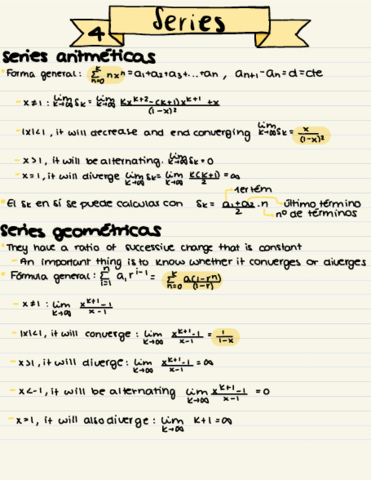 4
Series
Series aritméticas
• Forma general: ∑_{n=0}^{k} nxⁿ = a₁+a₂+a₃+...+aₙ , aₙ₊₁-aₙ=d=cte
- x≠1: lim_{k→∞} Sₖ = lim_{k→∞} (kx^{k+2}-(k+1)x^{k+1}+x)/(1-x)²
- |x|<1, it will decrease and end converging lim_{k→∞} Sₖ = x/(1-x)²
- x>1, it will be alternating. lim_{k→∞} Sₖ=0
- x=1, it will diverge lim_{k→∞} Sₖ = lim_{k→∞} k(k+1)/2 = ∞
1er térm
• El Sₖ en sí se puede calculas con Sₖ = (a₁+aₖ)/2 · n
último término
nº de términos
Series geométricas
• They have a ratio of successive change that is constant
- An important thing is to know whether it converges or diverges
• Fórmula general: ∑_{i=1}^{n} a₁ r^{i-1} = ∑_{n=0}^{k} a(1-rⁿ)/(1-r)
- x≠1: lim_{k→∞} (x^{k+1}-1)/(x-1)
- |x|<1, it will converge: lim_{k→∞} (x^{k+1}-1)/(x-1) = 1/(1-x)
- x>1, it will diverge: lim_{k→∞} (x^{k+1}-1)/(x-1) = ∞
- x<-1, it will be alternating lim_{k→∞} (x^{k+1}-1)/(x-1) = 0
- x=1, it will also diverge: lim_{k→∞} k+1=∞